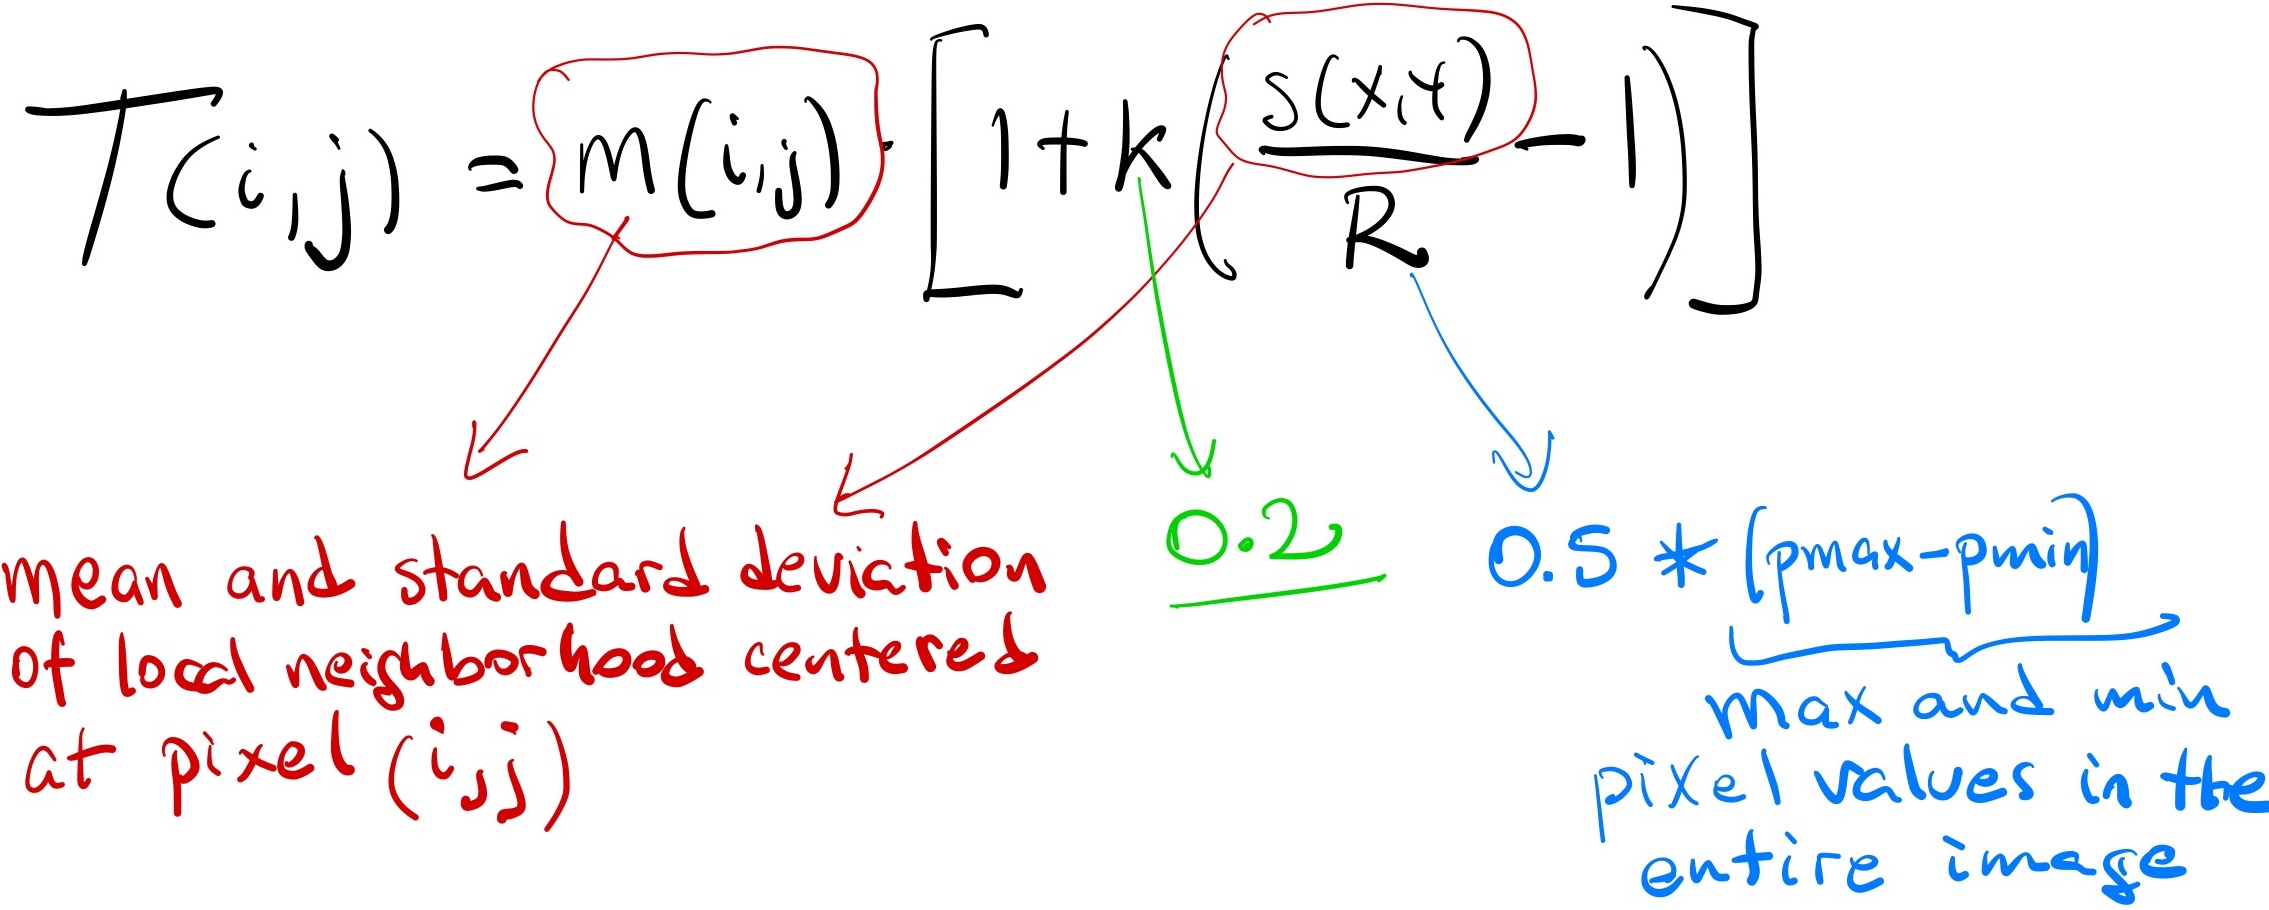 T(i,j) = m(i,j) · [1 + k (s(x,y) / R − 1)]
mean and standard deviation
of local neighborhood centered
at pixel (i,j)
0.2
0.5 * (pmax-pmin)
max and min
pixel values in the
entire image